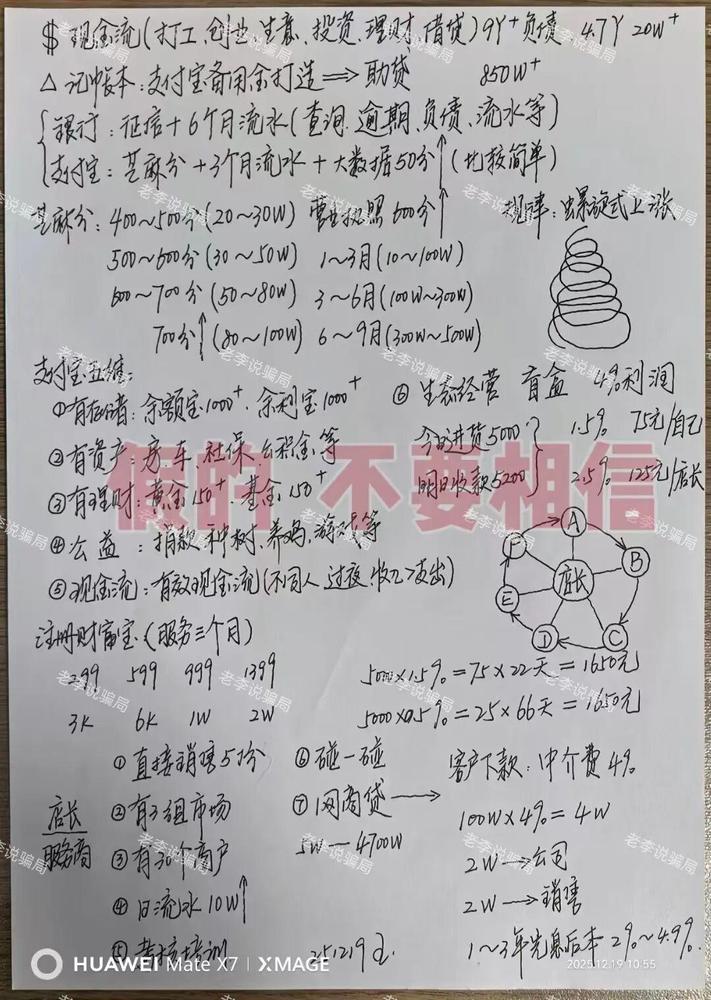 $ 现金流(打工、创业、生意、投资、理财、借贷) 9Y+负债 4.7Y 20W+
△ 记帐本:支付宝备用金打造⇒助贷 850W+
银行:征信+6个月流水(查询、逾期、负债、流水等)
支付宝:芝麻分+3个月流水+大数据50分↑(比较简单)
芝麻分:400~500分(20~30W) 营业执照 600分↑ 规律:螺旋式上涨
500~600分(30~50W) 1~3月(10~100W)
600~700分(50~80W) 3~6月(100W~300W)
700分↑(80~100W) 6~9月(300W~500W)
支付宝五维:
①有存储:余额宝1000+、余利宝1000+ ⑥生态经营 盲盒 4%利润
②有资产:房、车、社保、公积金等 今日进货5000 1.5% 75元/自己
③有理财:黄金150+、基金150+ 明日收款5200 2.5% 125元/店长
假的 不要相信
④公益:捐款、种树、养鸡、游戏等
⑤现金流:有效现金流(不同人、过夜、收入>支出)
A
B
C
D
E
F
店长
注册财富宝(服务三个月)
299 599 999 1399
3K 6K 1W 2W
5000×1.5%=75×22天=1650元
5000×0.5%=25×66天=1650元
店长
服务商
①直接销售5份
②有3组市场
③有30个商户
④日流水10W↑
⑤考核培训
⑥碰一碰
⑦网商贷→
5W—4700W
客户下款:中介费4%
100W×4%=4W
2W→公司
2W→销售
1~3年先息后本2%~4.9%
251219
HUAWEI Mate X7 | XMAGE
2025.12.19 10:55
老李说骗局